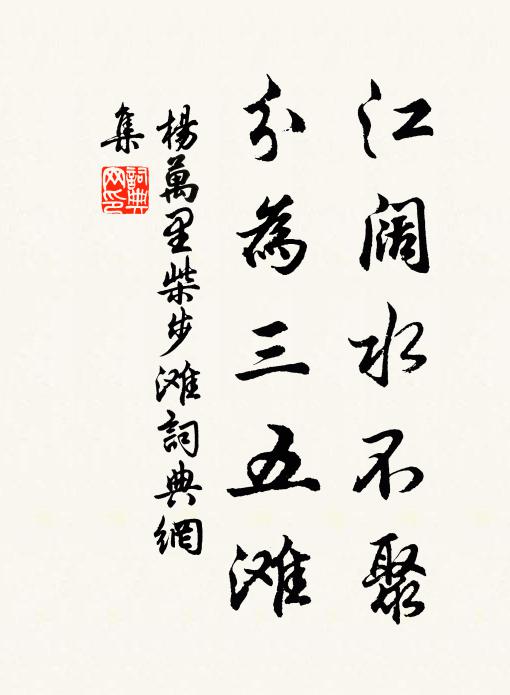 江阔水不聚
分為三五滩
楊萬里柴步滩詞典網
集
詞典网印